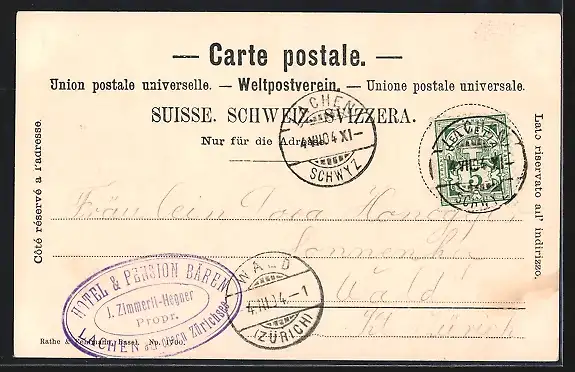 — Carte postale. —
Union postale universelle. — Weltpostverein. — Unione postale universale.
SUISSE. SCHWEIZ. SVIZZERA.
Nur für die Adresse.
Côté réservé a l'adresse.
Lato riservato aul' indirizzo.
LACHEN
4.VIII.04 XI–
SCHWYZ
LACHEN
SCHWYZ
5
Fräulein
Wald
Kt. Zürich
WALD
4.VIII.04.–1
(ZÜRICH)
HOTEL & PENSION BÄREN
J. Zimmerli-Hegner
Propr.
LACHEN am Zürichsee
Rathe & Fehlmann, Basel. No. 1700